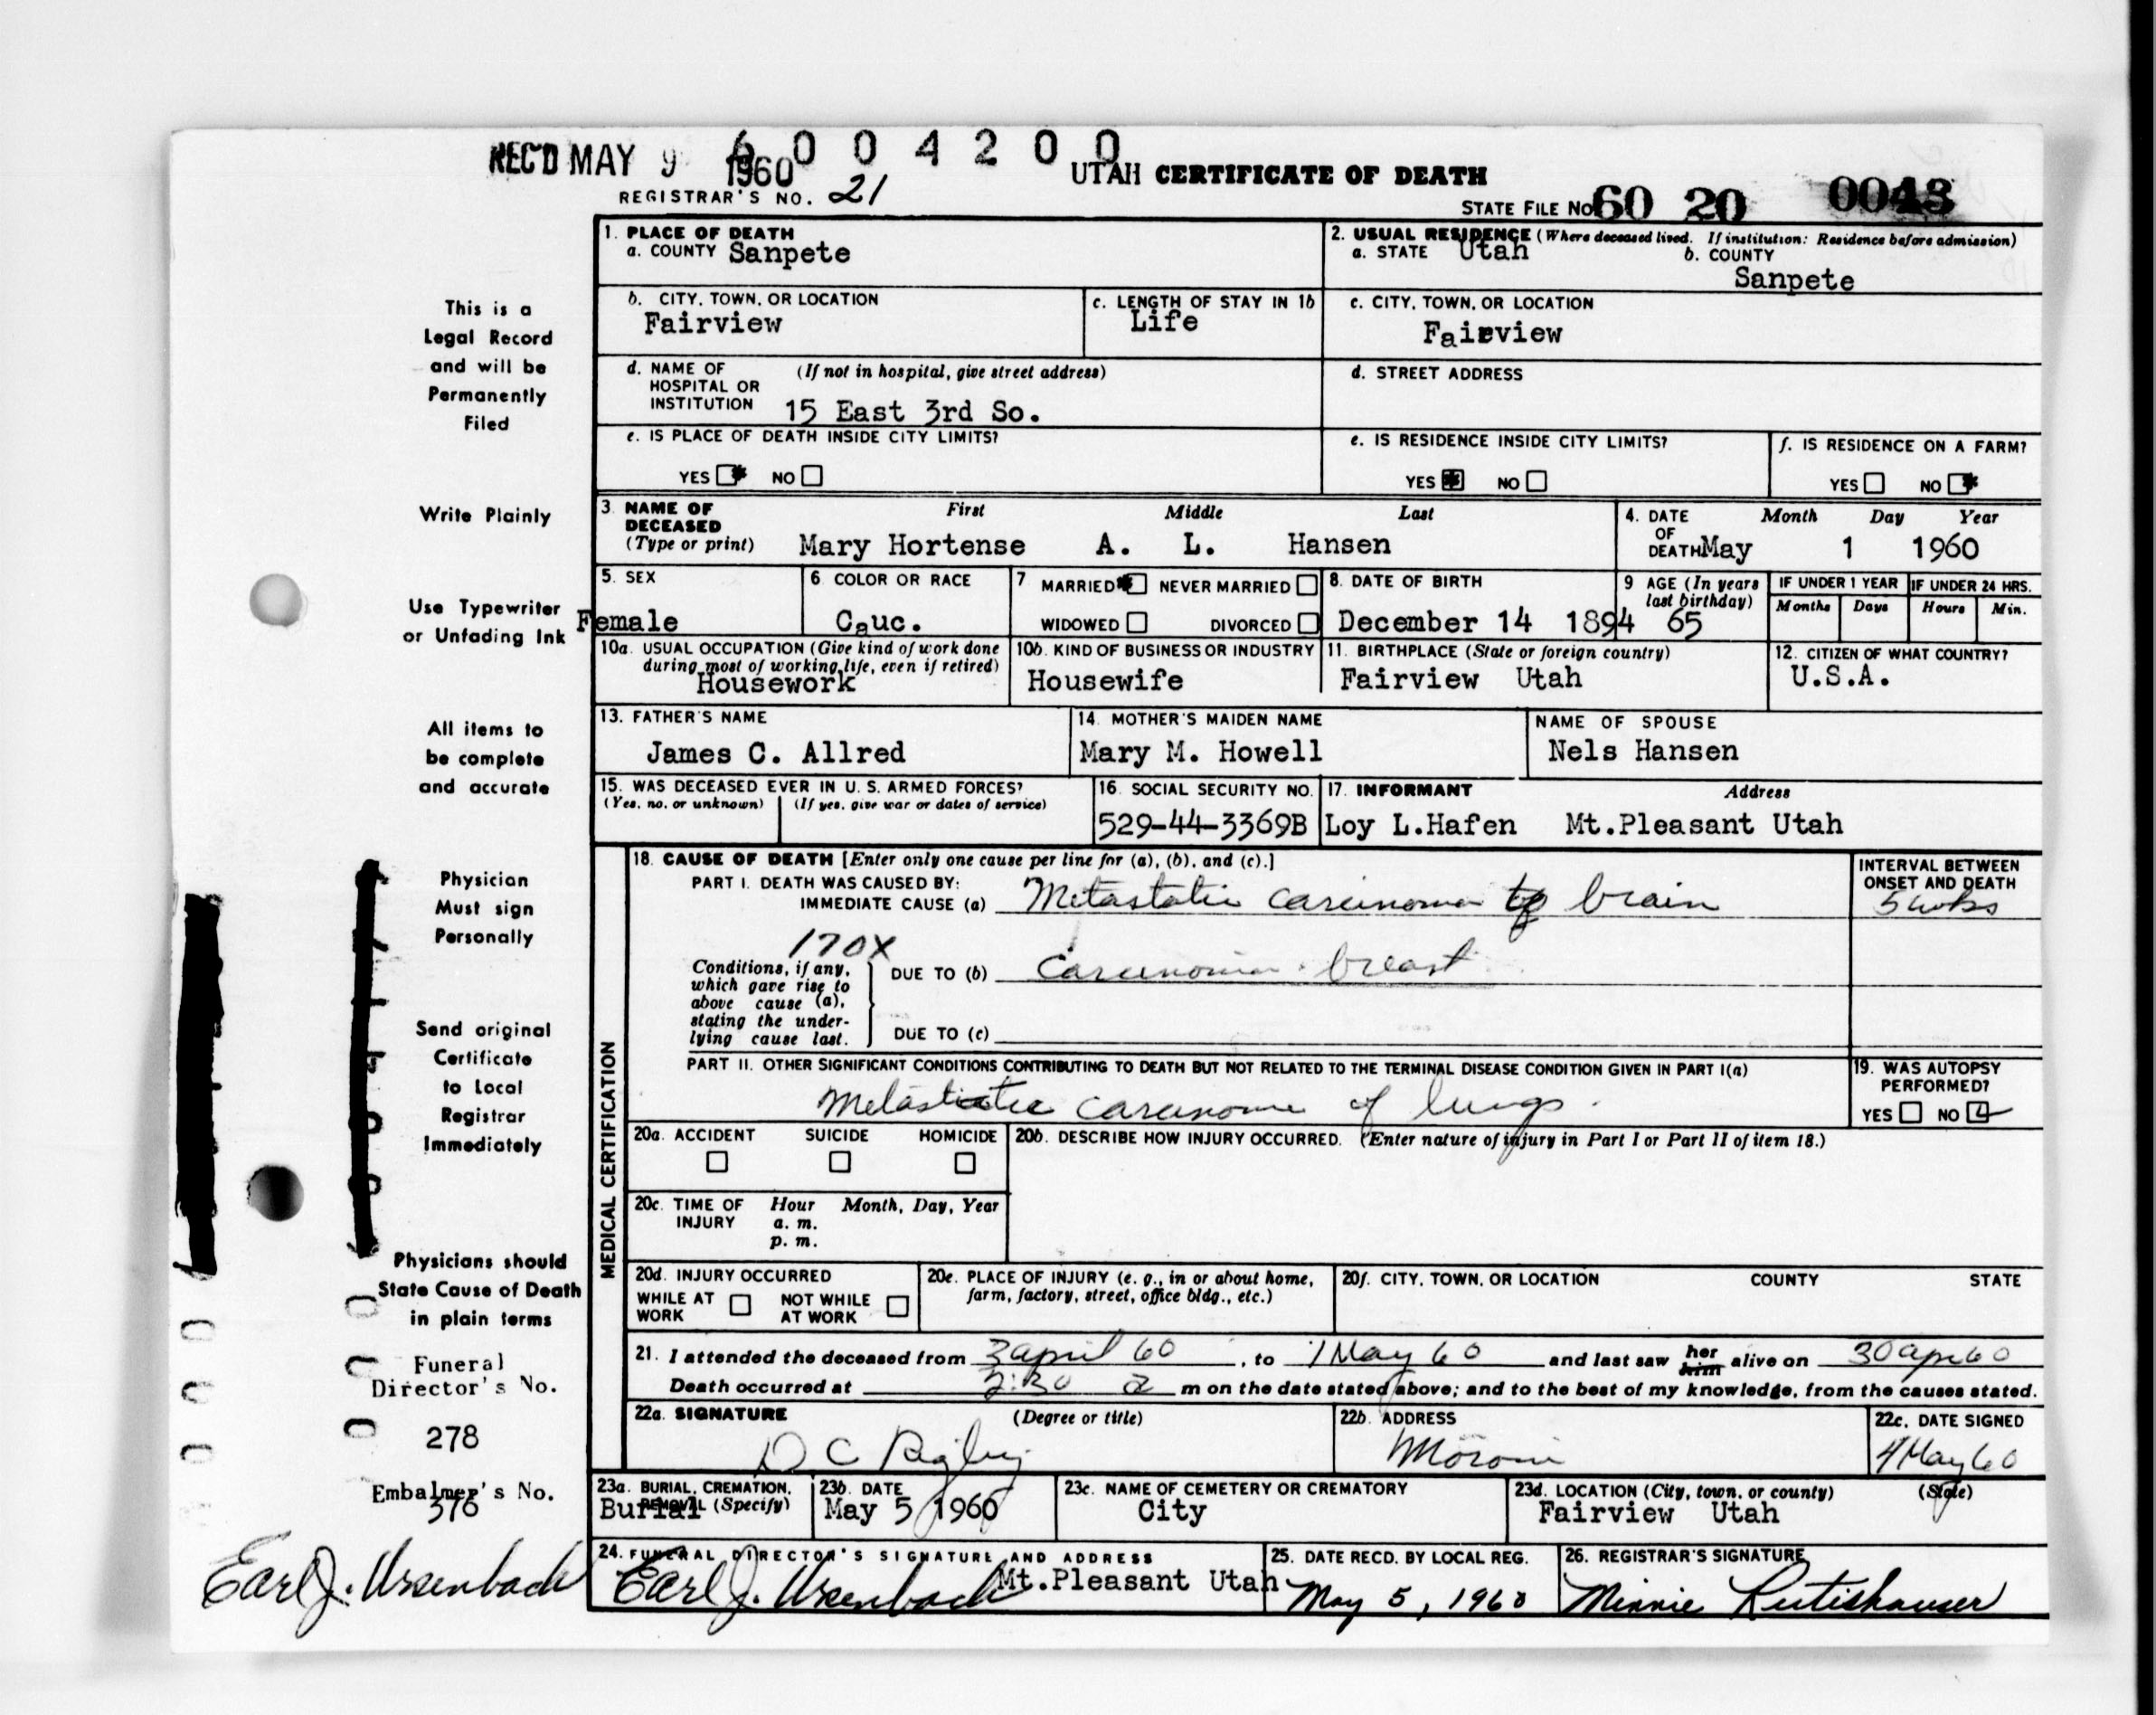 REC'D MAY 9 1960
6 0 0 4 2 0 0
UTAH CERTIFICATE OF DEATH
REGISTRAR'S NO. 21
STATE FILE NO. 60 20 0043
This is a
Legal Record
and will be
Permanently
Filed
Write Plainly
Use Typewriter
or Unfading Ink
All items to
be complete
and accurate
Physician
Must sign
Personally
Send original
Certificate
to Local
Registrar
Immediately
Physicians should
State Cause of Death
in plain terms
Funeral
Director's No.
278
Embalmer's No.
376
Earl J. Ursenbach
1. PLACE OF DEATH
a. COUNTY Sanpete
2. USUAL RESIDENCE (Where deceased lived. If institution: Residence before admission)
a. STATE Utah b. COUNTY
Sanpete
b. CITY, TOWN, OR LOCATION
Fairview
c. LENGTH OF STAY IN 1b
Life
c. CITY, TOWN, OR LOCATION
Fairview
d. NAME OF HOSPITAL OR INSTITUTION (If not in hospital, give street address)
15 East 3rd So.
d. STREET ADDRESS
e. IS PLACE OF DEATH INSIDE CITY LIMITS?
YES NO
e. IS RESIDENCE INSIDE CITY LIMITS?
YES NO
f. IS RESIDENCE ON A FARM?
YES NO
3. NAME OF DECEASED (Type or print) First Middle Last
Mary Hortense A. L. Hansen
4. DATE OF DEATH Month Day Year
May 1 1960
5. SEX
Female
6. COLOR OR RACE
Cauc.
7 MARRIED NEVER MARRIED
WIDOWED DIVORCED
8. DATE OF BIRTH
December 14 1894
9 AGE (In years last birthday)
65
IF UNDER 1 YEAR IF UNDER 24 HRS.
Months Days Hours Min.
10a. USUAL OCCUPATION (Give kind of work done during most of working life, even if retired)
Housework
10b. KIND OF BUSINESS OR INDUSTRY
Housewife
11. BIRTHPLACE (State or foreign country)
Fairview Utah
12. CITIZEN OF WHAT COUNTRY?
U.S.A.
13. FATHER'S NAME
James C. Allred
14. MOTHER'S MAIDEN NAME
Mary M. Howell
NAME OF SPOUSE
Nels Hansen
15. WAS DECEASED EVER IN U. S. ARMED FORCES?
(Yes, no, or unknown) (If yes, give war or dates of service)
16. SOCIAL SECURITY NO.
529-44-3369B
17. INFORMANT Address
Loy L.Hafen Mt.Pleasant Utah
MEDICAL CERTIFICATION
18. CAUSE OF DEATH [Enter only one cause per line for (a), (b), and (c).]
PART I. DEATH WAS CAUSED BY:
IMMEDIATE CAUSE (a) Metastatic carcinoma to brain
INTERVAL BETWEEN ONSET AND DEATH
5 wks
170X
Conditions, if any, which gave rise to above cause (a), stating the underlying cause last.
DUE TO (b) Carcinoma breast
DUE TO (c)
PART II. OTHER SIGNIFICANT CONDITIONS CONTRIBUTING TO DEATH BUT NOT RELATED TO THE TERMINAL DISEASE CONDITION GIVEN IN PART I(a)
Metastatic carcinoma of lungs.
19. WAS AUTOPSY PERFORMED?
YES NO
20a. ACCIDENT SUICIDE HOMICIDE
20b. DESCRIBE HOW INJURY OCCURRED. (Enter nature of injury in Part I or Part II of item 18.)
20c. TIME OF INJURY Hour Month, Day, Year
a. m.
p. m.
20d. INJURY OCCURRED
WHILE AT WORK NOT WHILE AT WORK
20e. PLACE OF INJURY (e. g., in or about home, farm, factory, street, office bldg., etc.)
20f. CITY, TOWN, OR LOCATION COUNTY STATE
21. I attended the deceased from 3 april 60, to 1 May 60 and last saw her him alive on 30 Apr 60
Death occurred at 2:30 a m on the date stated above; and to the best of my knowledge, from the causes stated.
22a. SIGNATURE (Degree or title)
D C Rigby
22b. ADDRESS
Moroni
22c. DATE SIGNED
4 May 60
23a. BURIAL, CREMATION, REMOVAL (Specify)
Burial
23b. DATE
May 5 1960
23c. NAME OF CEMETERY OR CREMATORY
City
23d. LOCATION (City, town, or county) (State)
Fairview Utah
24. FUNERAL DIRECTOR'S SIGNATURE AND ADDRESS
Earl J. Ursenbach Mt.Pleasant Utah
25. DATE RECD. BY LOCAL REG.
May 5, 1960
26. REGISTRAR'S SIGNATURE
Minnie Rutishauser